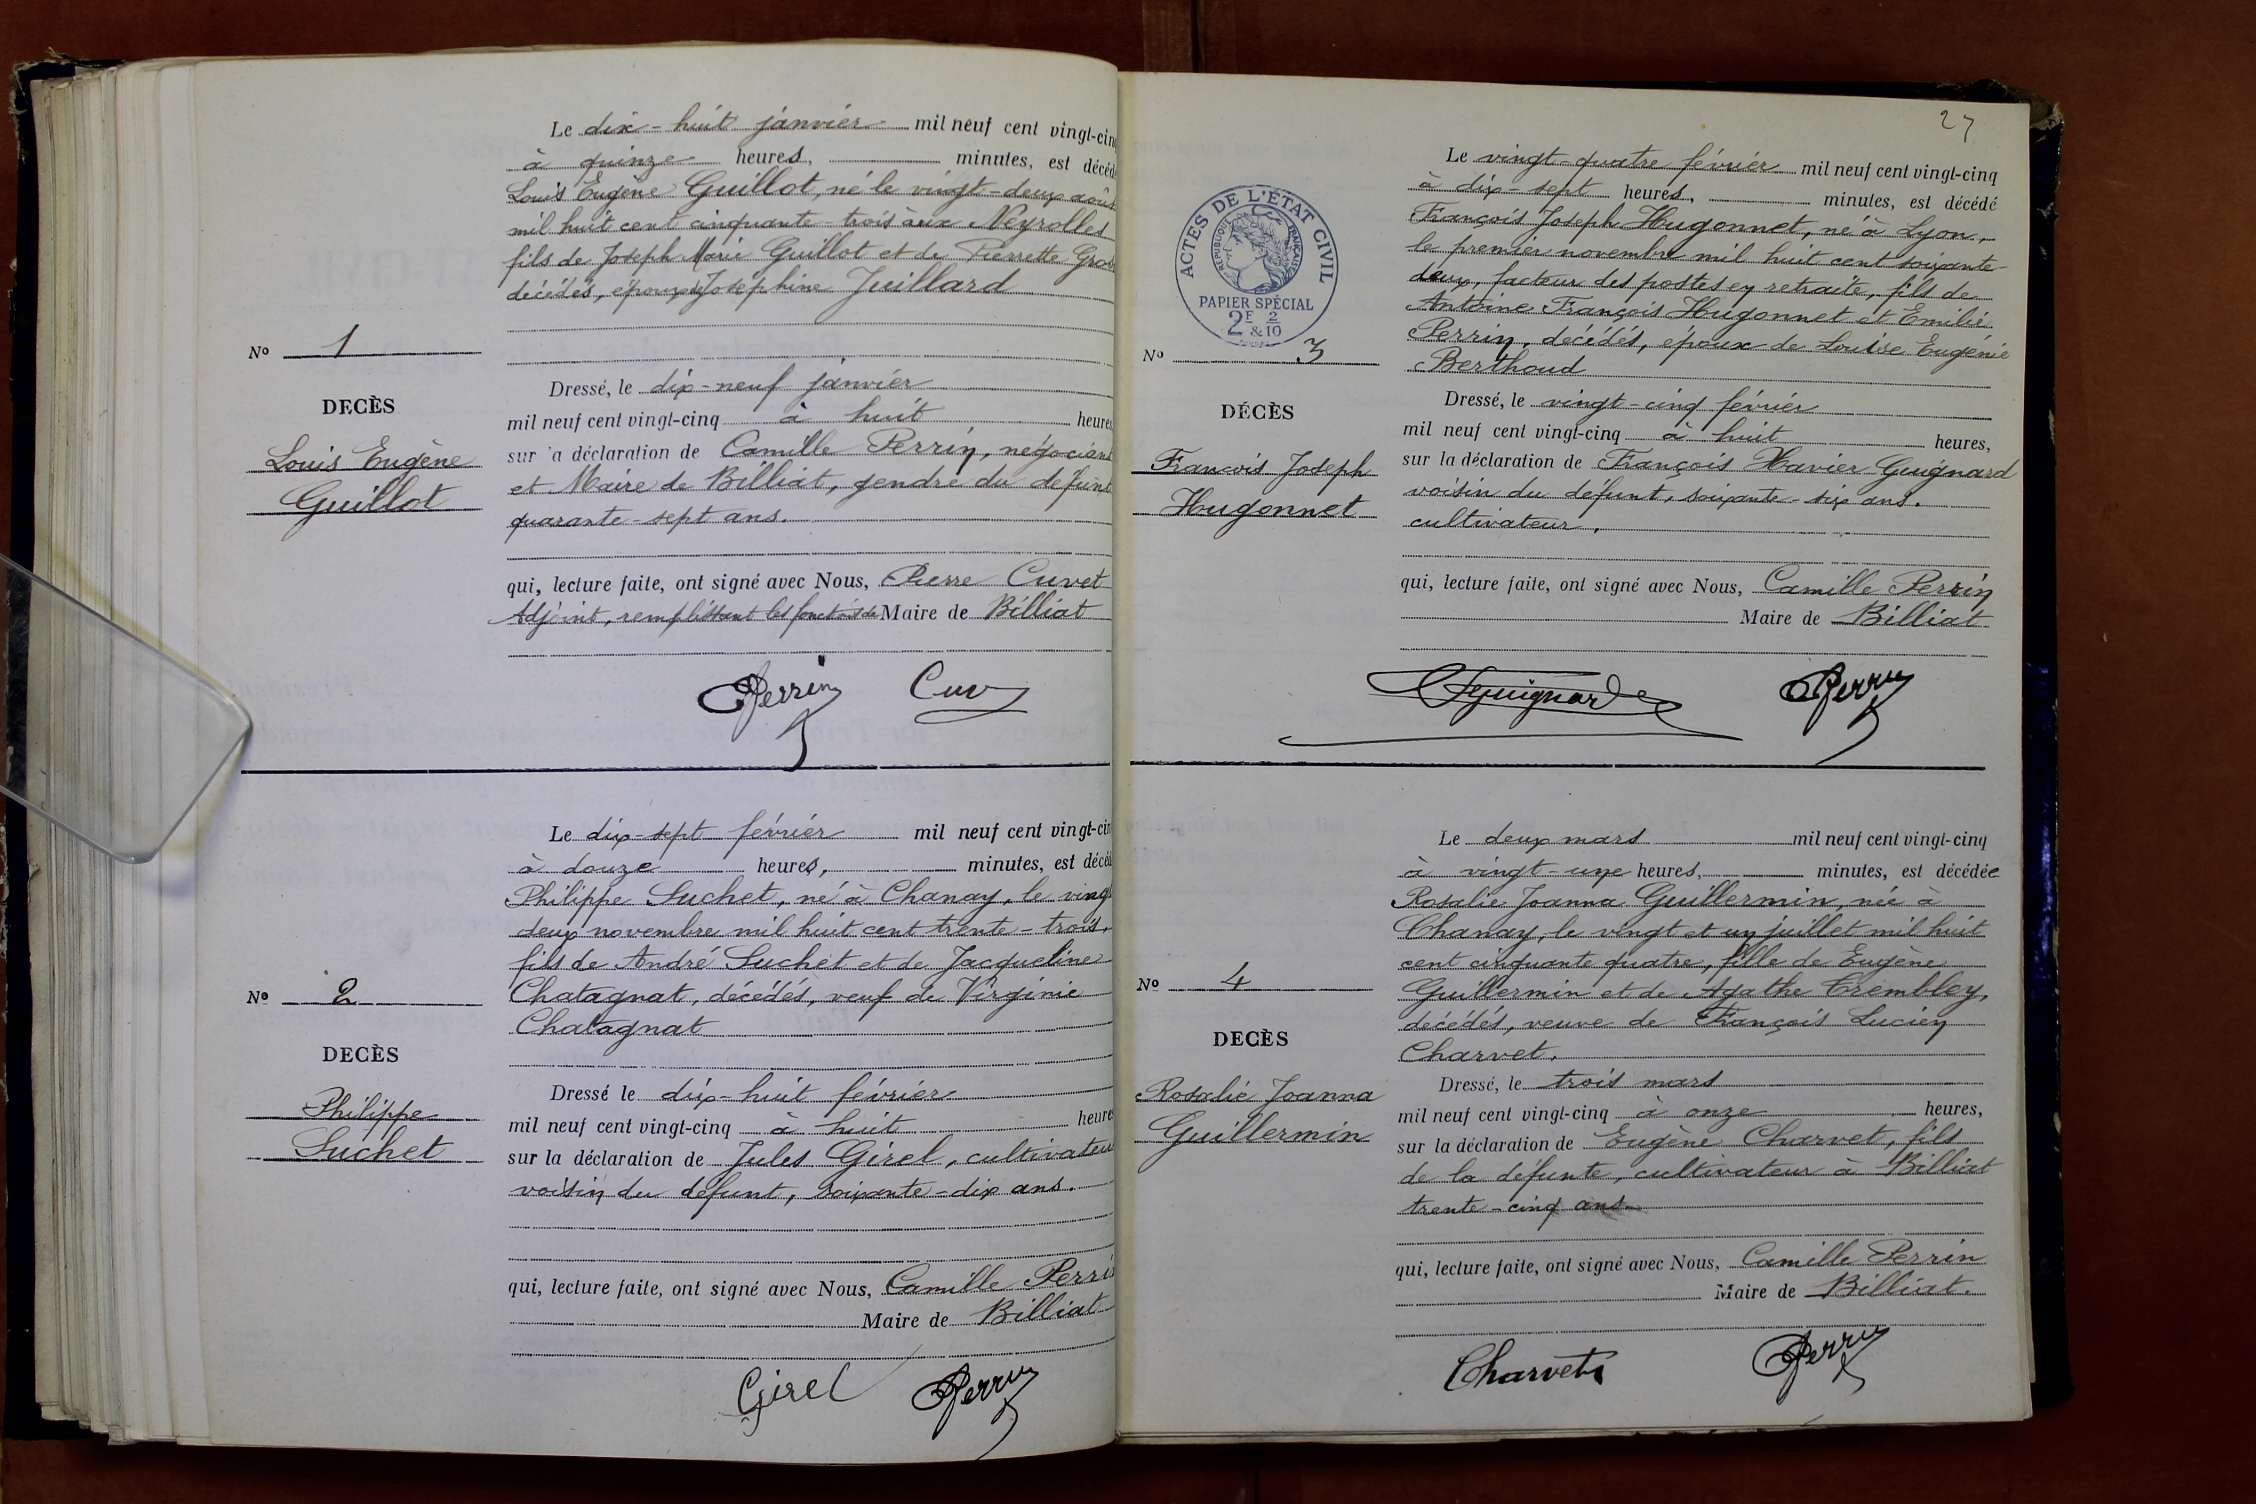 Le dix-huit janvier mil neuf cent vingt-cin
à quinze heures, minutes, est décéd
Louis Eugène Guillot, né le vingt-deux août
mil huit cent cinquante-trois aux Neyrolles
fils de Joseph Marie Guillot et de Pierrette Gros
décédés, époux de Joséphine Juillard
No 1
DECÈS
Louis Eugène
Guillot
Dressé, le dix-neuf janvier
mil neuf cent vingt-cinq à huit heures
sur a déclaration de Camille Perrin, négociant
et Maire de Billiat, gendre du défunt
quarante-sept ans.
qui, lecture faite, ont signé avec Nous, Pierre Cuvet
Adjoint, remplissant les fonctions de Maire de Billiat
Perrin Cuv
Le dix-sept février mil neuf cent vingt-cin
à douze heures, minutes, est décéd
Philippe Suchet, né à Chanay, le vingt
deux novembre mil huit cent trente-trois,
fils de André Suchet et de Jacqueline
Chatagnat, décédés, veuf de Virginie
Chatagnat
No 2
DECÈS
Philippe
Suchet
Dressé le dix-huit février
mil neuf cent vingt-cinq à huit heures
sur la déclaration de Jules Girel, cultivateur
voisin du défunt, soixante-dix ans.
qui, lecture faite, ont signé avec Nous, Camille Perri
Maire de Billiat
Girel Perrin
27
ACTES DE L'ÉTAT CIVIL
RÉPUBLIQUE FRANÇAISE
PAPIER SPÉCIAL
2F & 2/10
Le vingt-quatre février mil neuf cent vingt-cinq
à dix-sept heures, minutes, est décédé
François Joseph Hugonnet, né à Lyon,
le premier novembre mil huit cent soixante-
deux, facteur des postes en retraite, fils de
Antoine François Hugonnet et Emilie
Perrin, décédés, époux de Louise Eugénie
Berthoud
No 3
DÉCÈS
Francois Joseph
Hugonnet
Dressé, le vingt-cinq février
mil neuf cent vingt-cinq à huit heures,
sur la déclaration de François Xavier Guignard
voisin du défunt, soixante-six ans.
cultivateur.
qui, lecture faite, ont signé avec Nous, Camille Perrin
Maire de Billiat
Guignard Perrin
Le deux mars mil neuf cent vingt-cinq
à vingt-une heures, minutes, est décédée
Rosalie Joanna Guillermin, née à
Chanay, le vingt et un juillet mil huit
cent cinquante quatre, fille de Eugène
Guillermin et de Agathe Trembley,
décédés, veuve de François Lucien
Charvet.
No 4
DECÈS
Rosalie Joanna
Guillermin
Dressé, le trois mars
mil neuf cent vingt-cinq à onze heures,
sur la déclaration de Eugène Charvet, fils
de la défunte, cultivateur à Billiat
trente-cinq ans
qui, lecture faite, ont signé avec Nous, Camille Perrin
Maire de Billiat.
Charvet Perrin